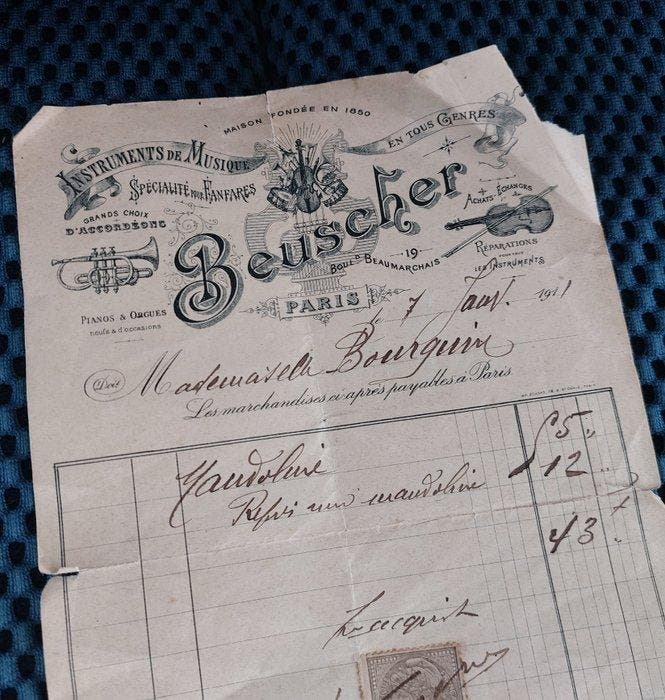 MAISON FONDÉE EN 1850
INSTRUMENTS DE MUSIQUE
EN TOUS GENRES
SPÉCIALITÉ POUR FANFARES
GRANDS CHOIX
D'ACCORDÉONS
ACHATS - ÉCHANGES
Beuscher
19
BOULD BEAUMARCHAIS
RÉPARATIONS
POUR TOUS
LES INSTRUMENTS
PIANOS & ORGUES
neufs & d'occasions
PARIS
le 7 Janv. 1911
Doit Mademoiselle Bourguin
Les marchandises ci-après payables à Paris
Mandoline 55
Repris une mandoline 12
43
Pr acquit